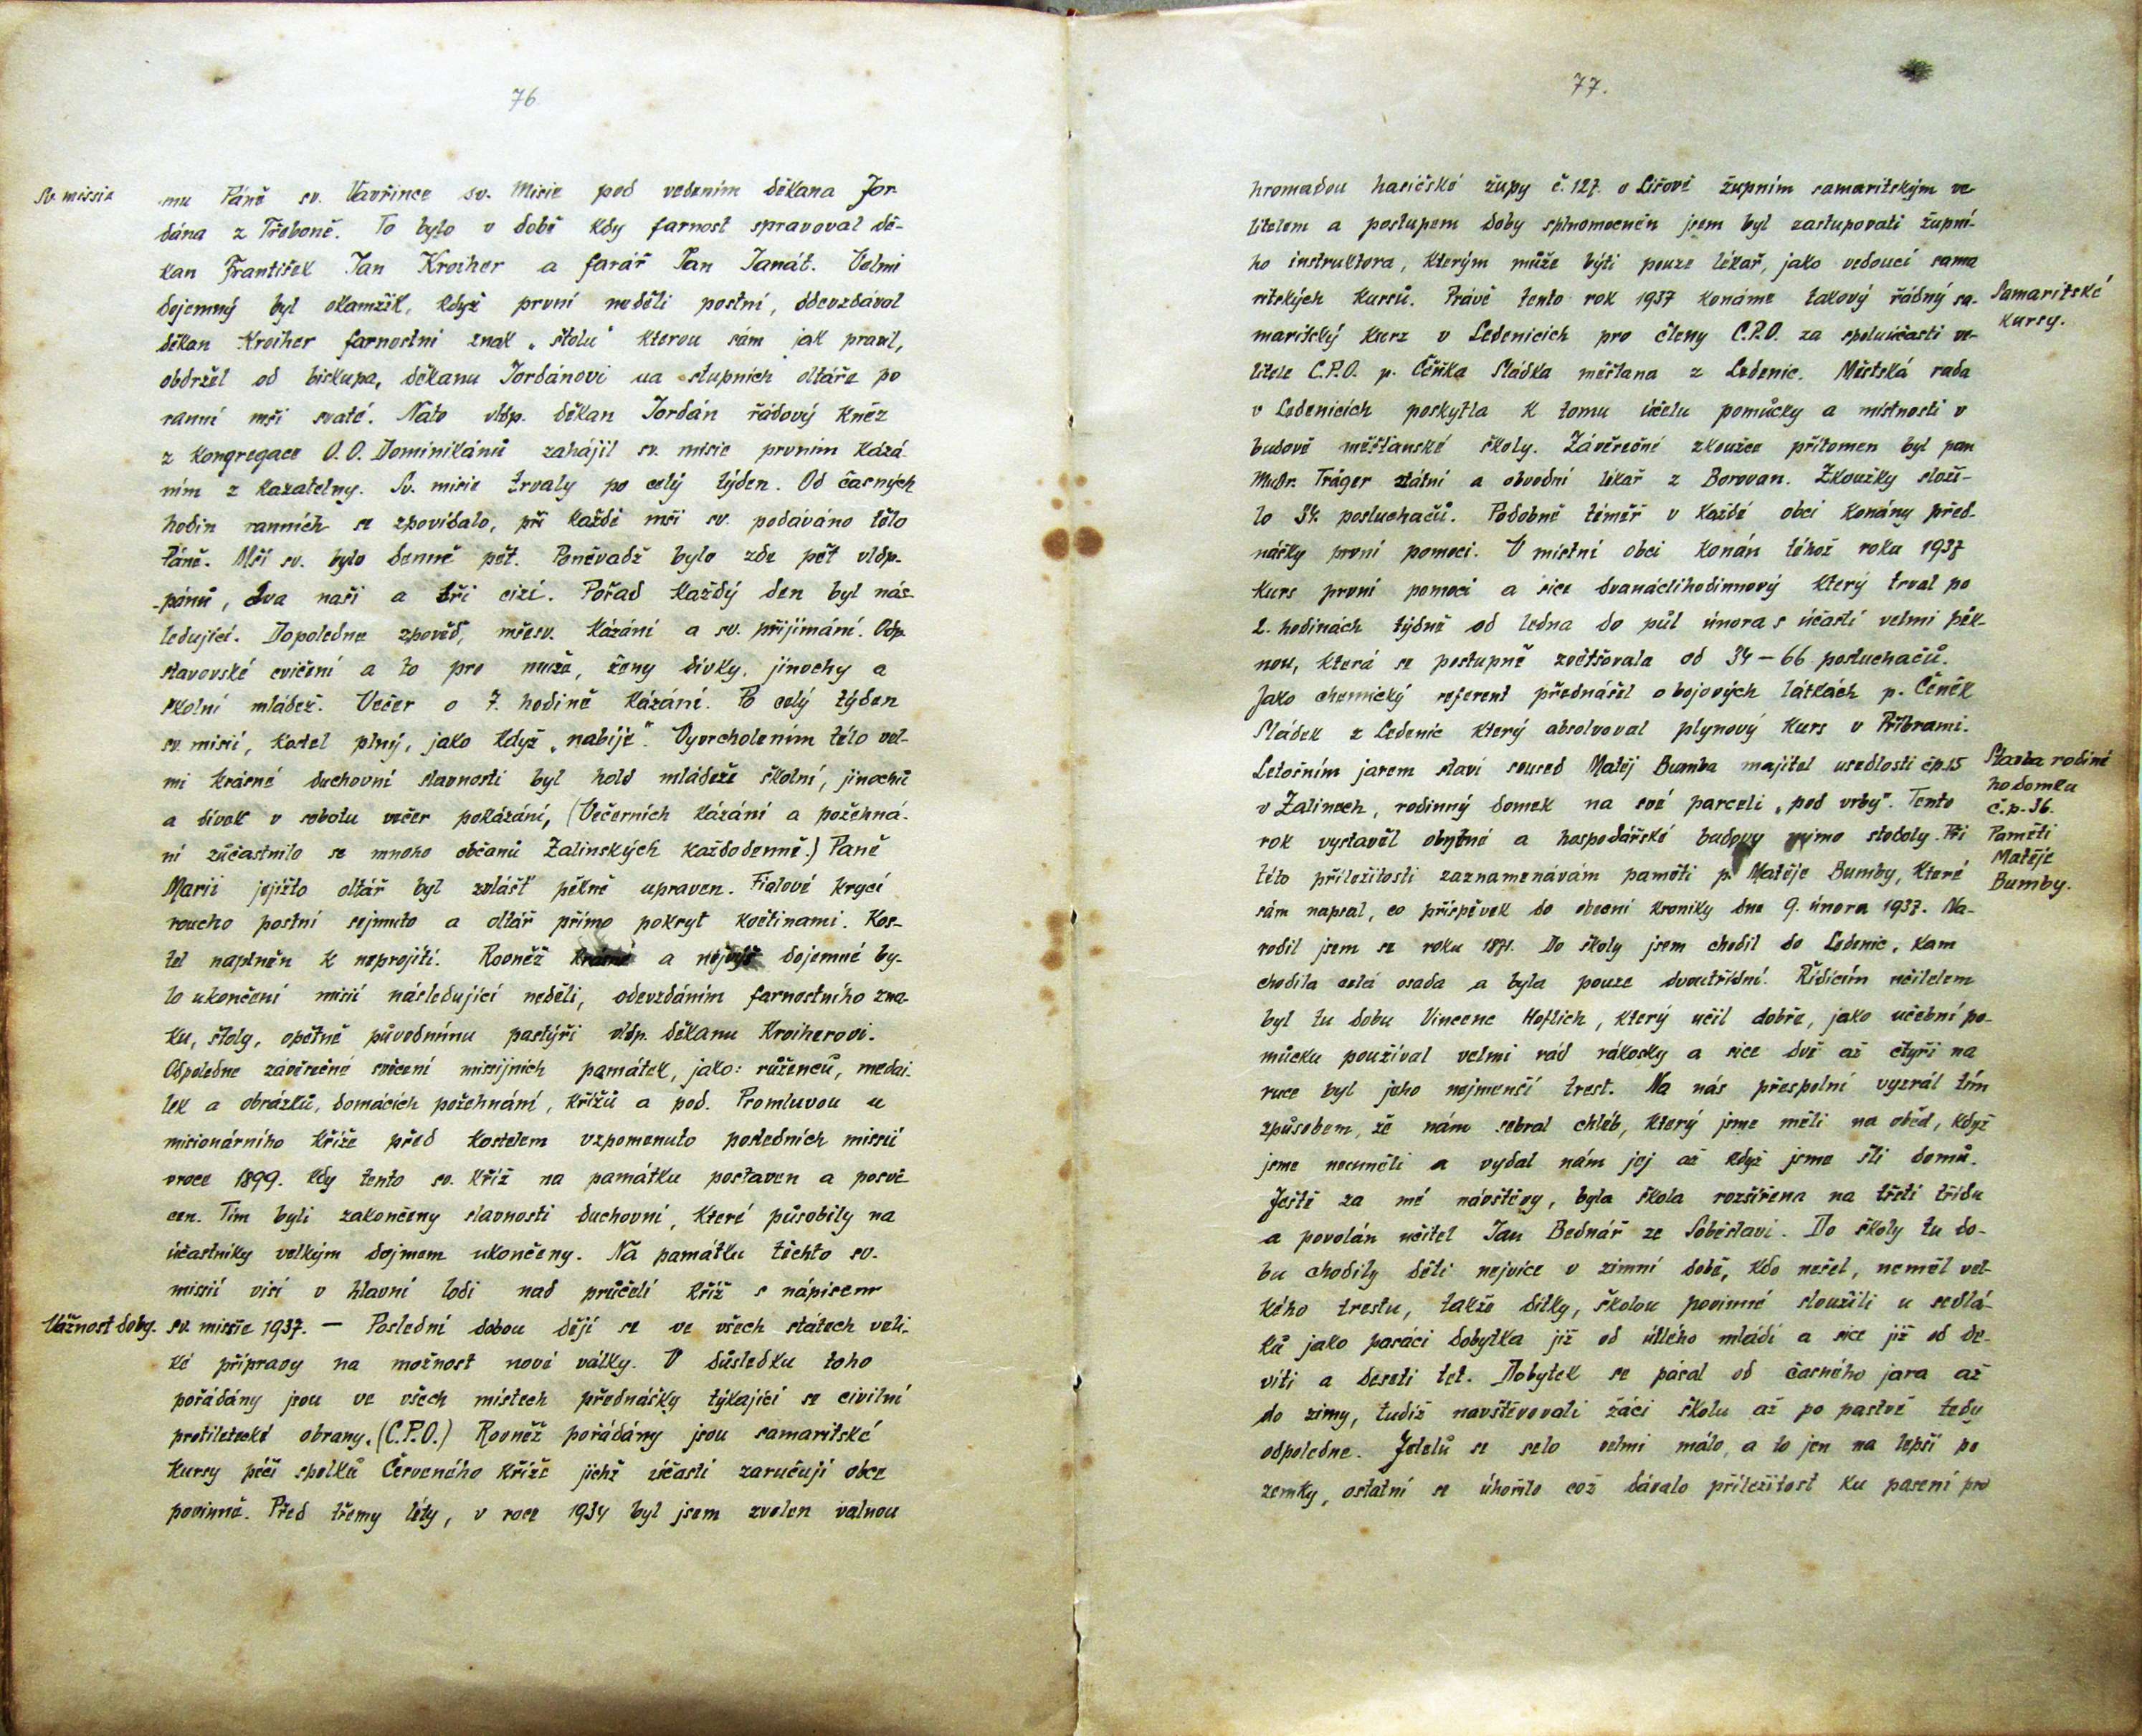 76
Sv. missie
mu Páně sv. Vavřince sv. Misie pod vedením děkana Jor-
dána z Třeboně. To bylo v době kdy farnost spravoval dě-
kan František Jan Kroiher a farář Pan Janát. Velmi
dojemný byl okamžik, když první neděli postní, odevzdával
děkan Kroiher farnostní znak „štolu" kterou sám jak pravil,
obdržel od biskupa, děkanu Jordánovi na stupních oltáře po
ranní mši svaté. Nato vldp. děkan Jordán řádový kněz
z kongregace O.O. Dominikánů zahájil sv. misie prvním kázá-
ním z kazatelny. Sv. misie trvaly po celý týden. Od časných
hodin ranních se zpovídalo, při každé mši sv. podáváno tělo
Páně. Mší sv. bylo denně pět. Poněvadž bylo zde pět vldp.
-pánů, dva naši a tři cizí. Pořad každý den byl nás-
ledující. Dopoledne zpověď, mšesv. kázání a sv. přijímání. Odp.
stavovské cvičení a to pro muže, ženy dívky, jinochy a
školní mládež. Večer o 7. hodině kázání. Po celý týden
sv. misií, kostel plný, jako když „nabije". Vyvrcholením této vel-
mi krásné duchovní slavnosti byl hold mládeže školní, jinochů
a dívek v sobotu večer pokázání, (Večerních kázání a požehná-
ní zůčastnilo se mnoho občanů Zalinských každodenně.) Paně
Marii jejížto oltář byl zvlášť pěkně upraven. Fialové krycí
roucho postní sejmuto a oltář přímo pokryt květinami. Kos-
tel naplněn k neprojití. Rovněž krásné a nejvýš dojemné by-
lo ukončení misií následující neděli, odevzdáním farnostního zna-
ku, štoly, opětně původnímu pastýři vldp. děkanu Kroiherovi.
Odpoledne závěrečné svěcení missijních památek, jako: růženců, medai-
lek a obrázků, domácích požehnání, křížů a pod. Promluvou u
misionárního kříže před kostelem vzpomenuto posledních missií
vroce 1899. kdy tento sv. kříž na památku postaven a posvě-
cen. Tím byli zakončeny slavnosti duchovní, které působily na
účastníky velkým dojmem ukončeny. Na památku těchto sv.
missií visí v hlavní lodi nad průčelí kříž s nápisem
Vážnost doby.
sv. missie 1937. — Poslední dobou dějí se ve všech státech veli-
ké přípravy na možnost nové války. V důsledku toho
pořádány jsou ve všech místech přednášky týkající se civilní
protiletecké obrany. (C.P.O.) Rovněž pořádány jsou samaritské
kursy péčí spolků Červeného kříže jichž účasti zaručují obce
povinně. Před třemy léty, v roce 1934 byl jsem zvolen valnou
77.
hromadou hasičské župy č. 127. v Lišově župním samaritským ve-
litelem a postupem doby splnomocněn jsem byl zastupovati župní-
ho instruktora, kterým může býti pouze lékař, jako vedoucí sama
ritských kursů. Právě tento rok 1937 konáme takový řádný sa-
Samaritské
kursy.
maritský kurz v Ledenicích pro členy C.P.O. za spoluúčasti ve-
litele C.P.O. p. Čeňka Sládka měšťana z Ledenic. Městská rada
v Ledenicích poskytla k tomu účelu pomůcky a místnosti v
budově měšťanské školy. Závěrečné zkoušce přítomen byl pan
Mudr. Träger státní a obvodní lékař z Borovan. Zkoušky slouži-
lo 34. posluchačů. Podobně téměř v každé obci konány před-
nášky první pomoci. V místní obci konán téhož roku 1937
kurs první pomoci a sice dvanáctihodinnový který trval po
2. hodinách týdně od ledna do půl února s účastí velmi pěk-
nou, která se postupně zvětšovala od 34 — 66 posluchačů.
Jako chemický referent přednášel o bojových látkách p. Čeněk
Sládek z Ledenic který absolvoval plynový kurs v Příbrami.
Letošním jarem staví soused Matěj Bumba majitel usedlosti čp.15
Stavba rodiné
ho domku
č.p. 36.
v Zalinech, rodinný domek na své parceli „pod vrby". Tento
rok vystavěl obytné a hospodářské budovy mimo stodoly. Při
Paměti
Matěje
Bumby.
této příležitosti zaznamenávám paměti p. Matěje Bumby, které
sám napsal, co příspěvek do obecní kroniky dne 9. února 1937. Na-
rodil jsem se roku 1871. Do školy jsem chodil do Ledenic, kam
chodila celá osada a byla pouze dvoutřídní. Řídícím učitelem
byl tu dobu Vincenc Hoflich, který učil dobře, jako učební po-
můcku používal velmi rád rákosky a sice dvě až čtyři na
ruce byl jeho nejmenší trest. Na nás přespolní vyzrál tím
způsobem, že nám sebral chléb, který jsme měli na oběd, když
jsme neuměli a vydal nám jej až když jsme šli domů.
Ještě za mé návštěvy, byla škola rozšířena na třetí třídu
a povolán učitel Jan Bednář ze Soběslavi. Do školy tu do-
bu chodily děti nejvíce v zimní době, kdo nešel, neměl vel-
kého trestu, takže dítky, školou povinné sloužili u sedlá-
ků jako pasáci dobytka již od útlého mládí a sice již od de-
víti a deseti let. Dobytek se pásal od časného jara až
do zimy, tudíž navštěvovali žáci školu až po pastvě tedy
odpoledne. Jetelů se selo velmi málo, a to jen na lepší po
zemky, ostatní se úhořilo což dávalo příležitost ku pasení pro